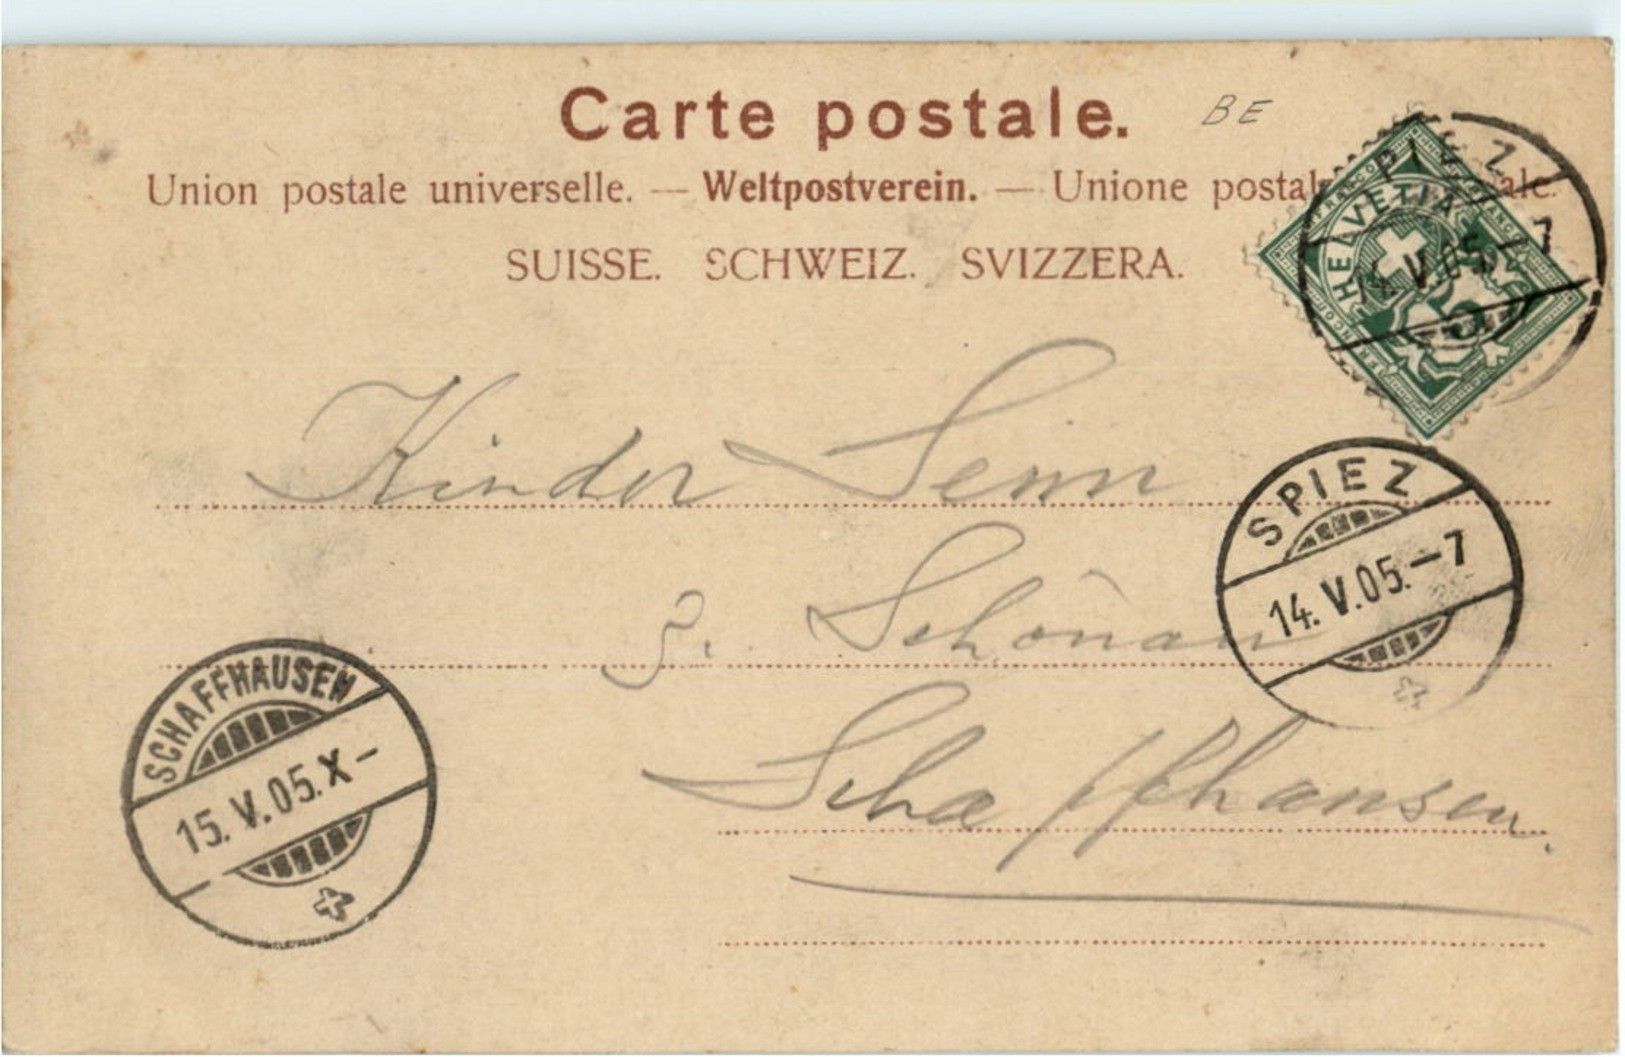 Carte postale.
BE
Union postale universelle. — Weltpostverein. — Unione postale
SUISSE. SCHWEIZ. SVIZZERA.
HELVETIA
FRANCO
5
14.V.05.-7
Kinder Senn
SPIEZ
14.V.05.-7
z. Schönau
Schaffhausen.
SCHAFFHAUSEN
15.V.05.X-